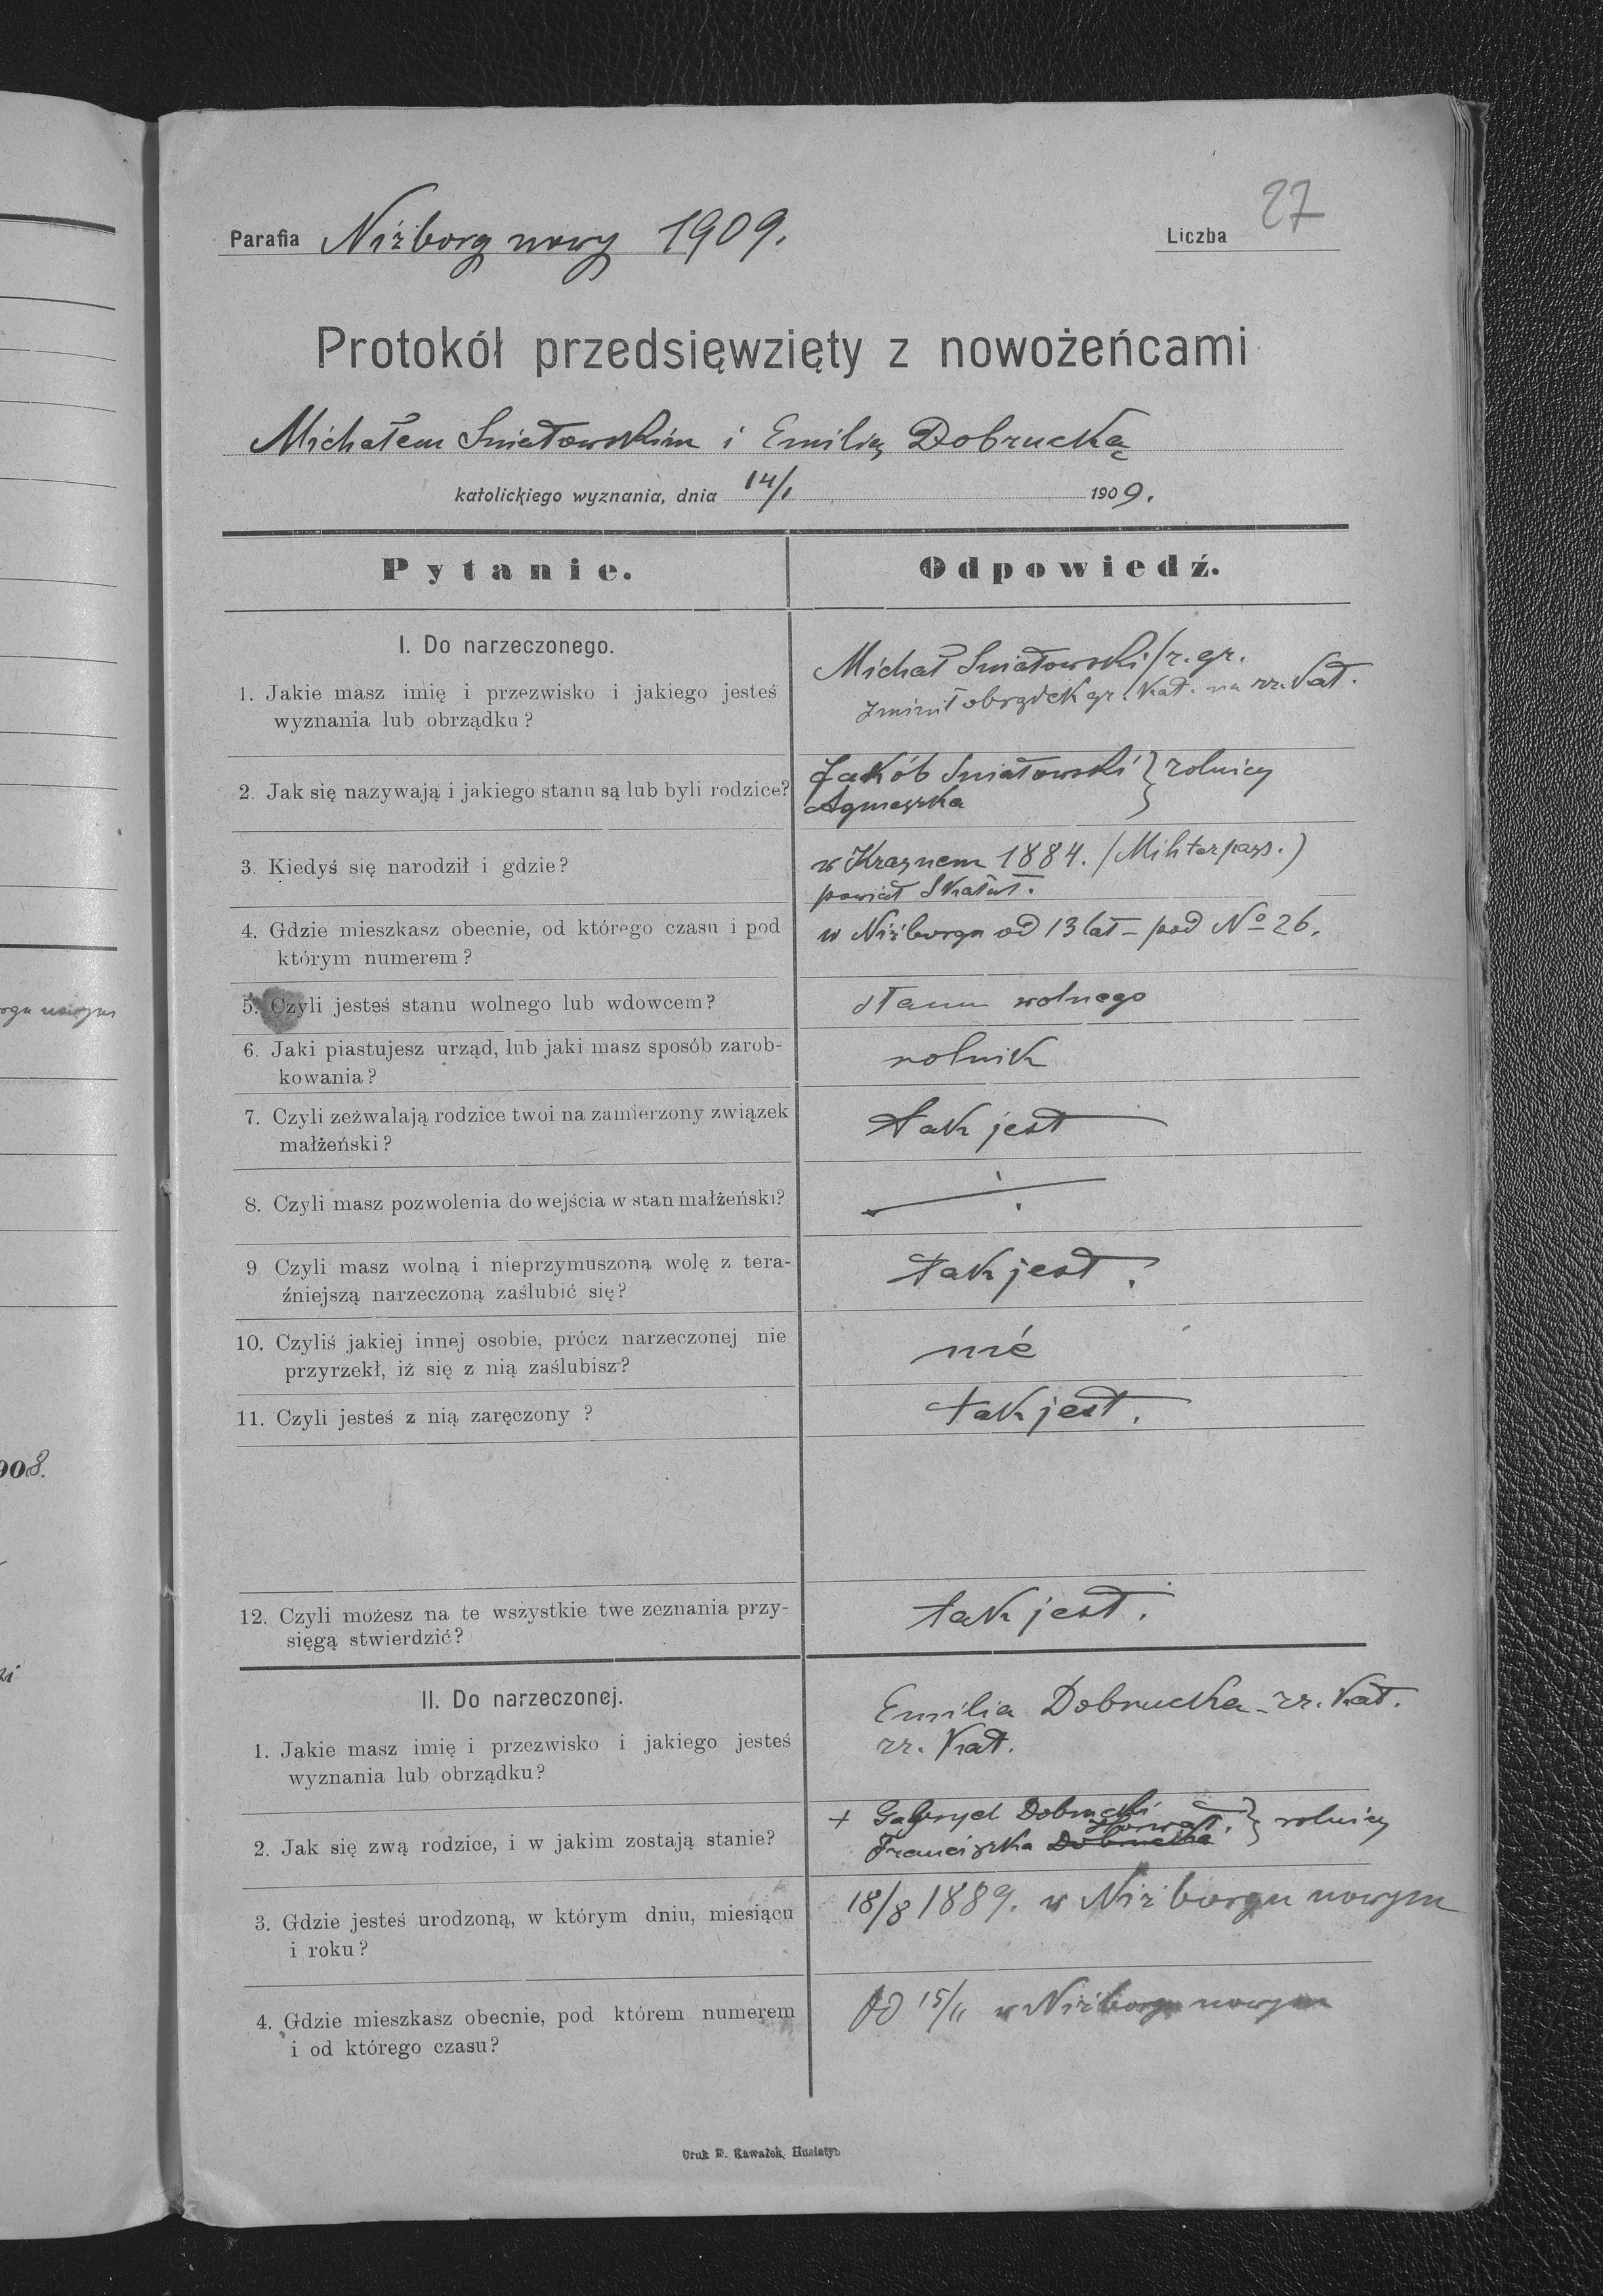 Parafia Niżborg nowy 1909.
Liczba 27
Protokół przedsięwzięty z nowożeńcami
Michałem Sniatowskim i Emilią Dobrucką
katolickiego wyznania, dnia 14/1 1909.
Pytanie. Odpowiedź.
I. Do narzeczonego.
1. Jakie masz imię i przezwisko i jakiego jesteś
wyznania lub obrządku?
Michał Sniatowski / r. gr.
zmienił obrządek gr. kat. na rz. kat.
2. Jak się nazywają i jakiego stanu są lub byli rodzice?
Jakób Sniatowski } rolnicy
Agnieszka
3. Kiedyś się narodził i gdzie?
w Krasnem 1884. (Militerpass.)
powiat Skałat.
4. Gdzie mieszkasz obecnie, od którego czasu i pod
którym numerem?
w Niżborgu od 13 lat – pod No 26.
5. Czyli jesteś stanu wolnego lub wdowcem?
stanu wolnego
6. Jaki piastujesz urząd, lub jaki masz sposób zarob-
kowania?
rolnik
7. Czyli zeżwalają rodzice twoi na zamierzony związek
małżeński?
tak jest
8. Czyli masz pozwolenia do wejścia w stan małżeński?
9 Czyli masz wolną i nieprzymuszoną wolę z tera-
źniejszą narzeczoną zaślubić się?
tak jest.
10. Czyliś jakiej innej osobie, prócz narzeczonej nie
przyrzekł, iż się z nią zaślubisz?
nie
11. Czyli jesteś z nią zaręczony ?
tak jest.
12. Czyli możesz na te wszystkie twe zeznania przy-
sięgą stwierdzić?
tak jest.
II. Do narzeczonej.
1. Jakie masz imię i przezwisko i jakiego jesteś
wyznania lub obrządku?
Emilia Dobrucka – rz. kat.
rz. kat.
2. Jak się zwą rodzice, i w jakim zostają stanie?
+ Gabryel Dobrucki } rolnicy
Franciszka Dobrucka
3. Gdzie jesteś urodzoną, w którym dniu, miesiącu
i roku?
18/8 1889. w Niżborgu nowym
4. Gdzie mieszkasz obecnie, pod którem numerem
i od którego czasu?
Od 15/11 w Niżborgu nowym
Druk F. Kawałek, Husiatyn
908.